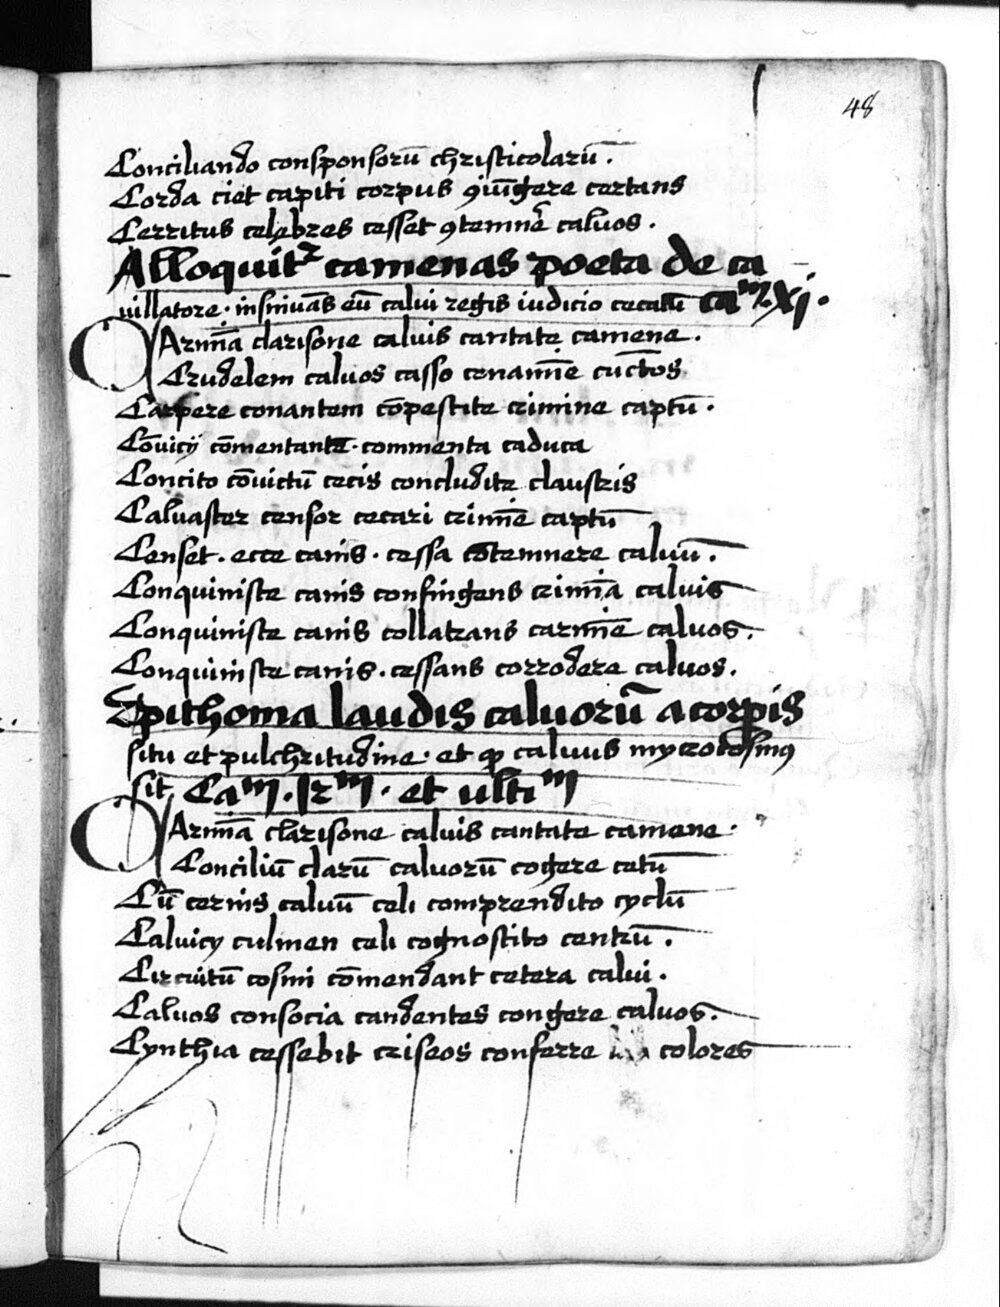 48
Conciliando consponsorū christicolarū.
Corda ciet capiti corpus ꝯiūgere certans
Cerritus celebres cesset ꝯtemnē caluos.
Alloquitʳ camenas poeta de ca
uillatore. insinuās eū calui regis iudicio cecatū Caᵐ. XI.
CArmīa clarisone caluis cantate camene.
Crudelem caluos casso cenamīe cūctos
Carpere conantem cōpescite crimine captū.
Cōuicij cōmentante. commenta caduca
Concito cōuictū cecis concludite claustris
Caluaster censor cecari crimīe captū
Censet. ecce canis. cessa cōtemnere caluū.
Conquinisce canis confingens crimīa caluis
Conquinisce canis collatrans carmīe caluos.
Conquinisce canis. cessans corrodere caluos.
Epithoma laudis caluorū a corpis
situ et pulchritudine. et ꝙ caluus mycrocosmꝰ
sit, Caᵐ. 12ᵐ. et ultiᵐ
CArmīa clarisone caluis cantate camene.
Conciliū clarū caluorū cogere cetū
Cū cernis caluū celi comprendito cyclū
Caluicij culmen celi cognoscito centrū.
Circuitū cosmi cōmendant cetera calui.
Caluos consocia candentes congere caluos.
Cynthia cessebit criseos conferre colores